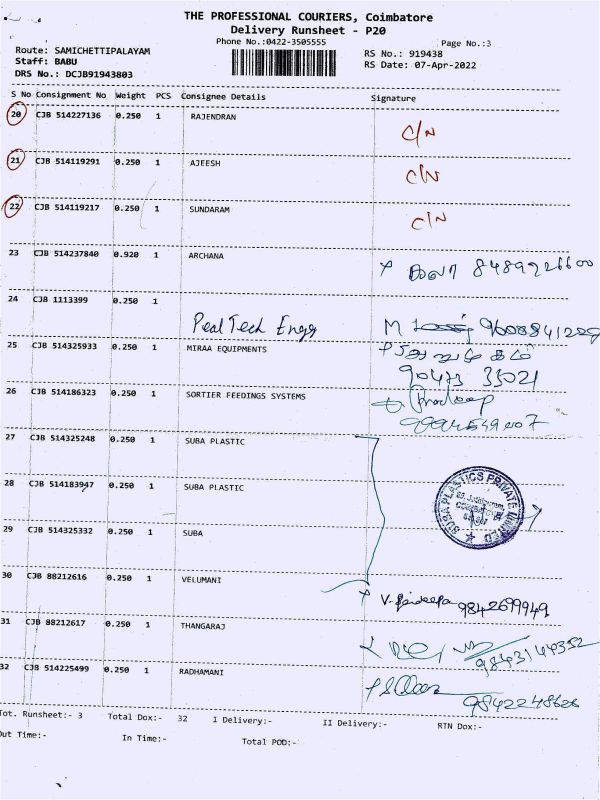 THE PROFESSIONAL COURIERS, Coimbatore
Delivery Runsheet - P20
Phone No.:0422-3505555
Page No.:3
Route: SAMICHETTIPALAYAM
RS No.: 919438
Staff: BABU
RS Date: 07-Apr-2022
DRS No.: DCJB91943803
S No Consignment No Weight PCS Consignee Details Signature
20 CJB 514227136 0.250 1 RAJENDRAN
C/N
21 CJB 514119291 0.250 1 AJEESH
C/N
22 CJB 514119217 0.250 1 SUNDARAM
C/N
23 CJB 514237840 0.920 1 ARCHANA
8489926600
24 CJB 1113399 0.250 1
Peal Tech Engg M 9608841229
25 CJB 514325933 0.250 1 MIRAA EQUIPMENTS
90473 33021
26 CJB 514186323 0.250 1 SORTIER FEEDINGS SYSTEMS
Pradeep
27 CJB 514325248 0.250 1 SUBA PLASTIC
28 CJB 514183947 0.250 1 SUBA PLASTIC
SUBA PLASTICS PRIVATE LIMITED
29 CJB 514325332 0.250 1 SUBA
30 CJB 88212616 0.250 1 VELUMANI
V. 9842699949
31 CJB 88212617 0.250 1 THANGARAJ
9843144352
32 CJB 514225499 0.250 1 RADHAMANI
9842248626
Tot. Runsheet:- 3 Total Dox:- 32 I Delivery:- II Delivery:- RTN Dox:-
Out Time:- In Time:- Total POD:-